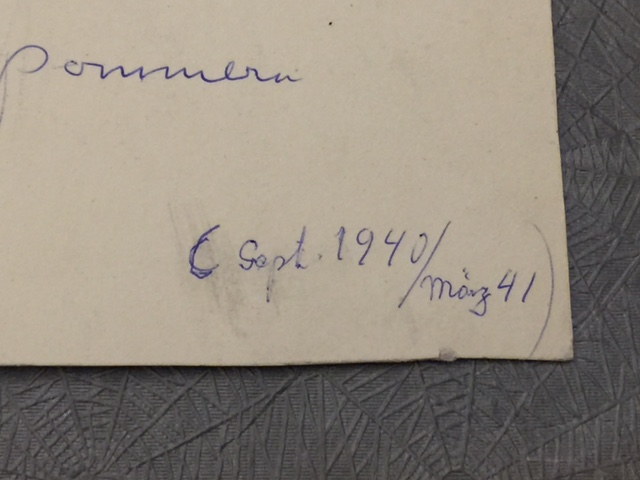 Pommern
( Sept. 1940/März 41)